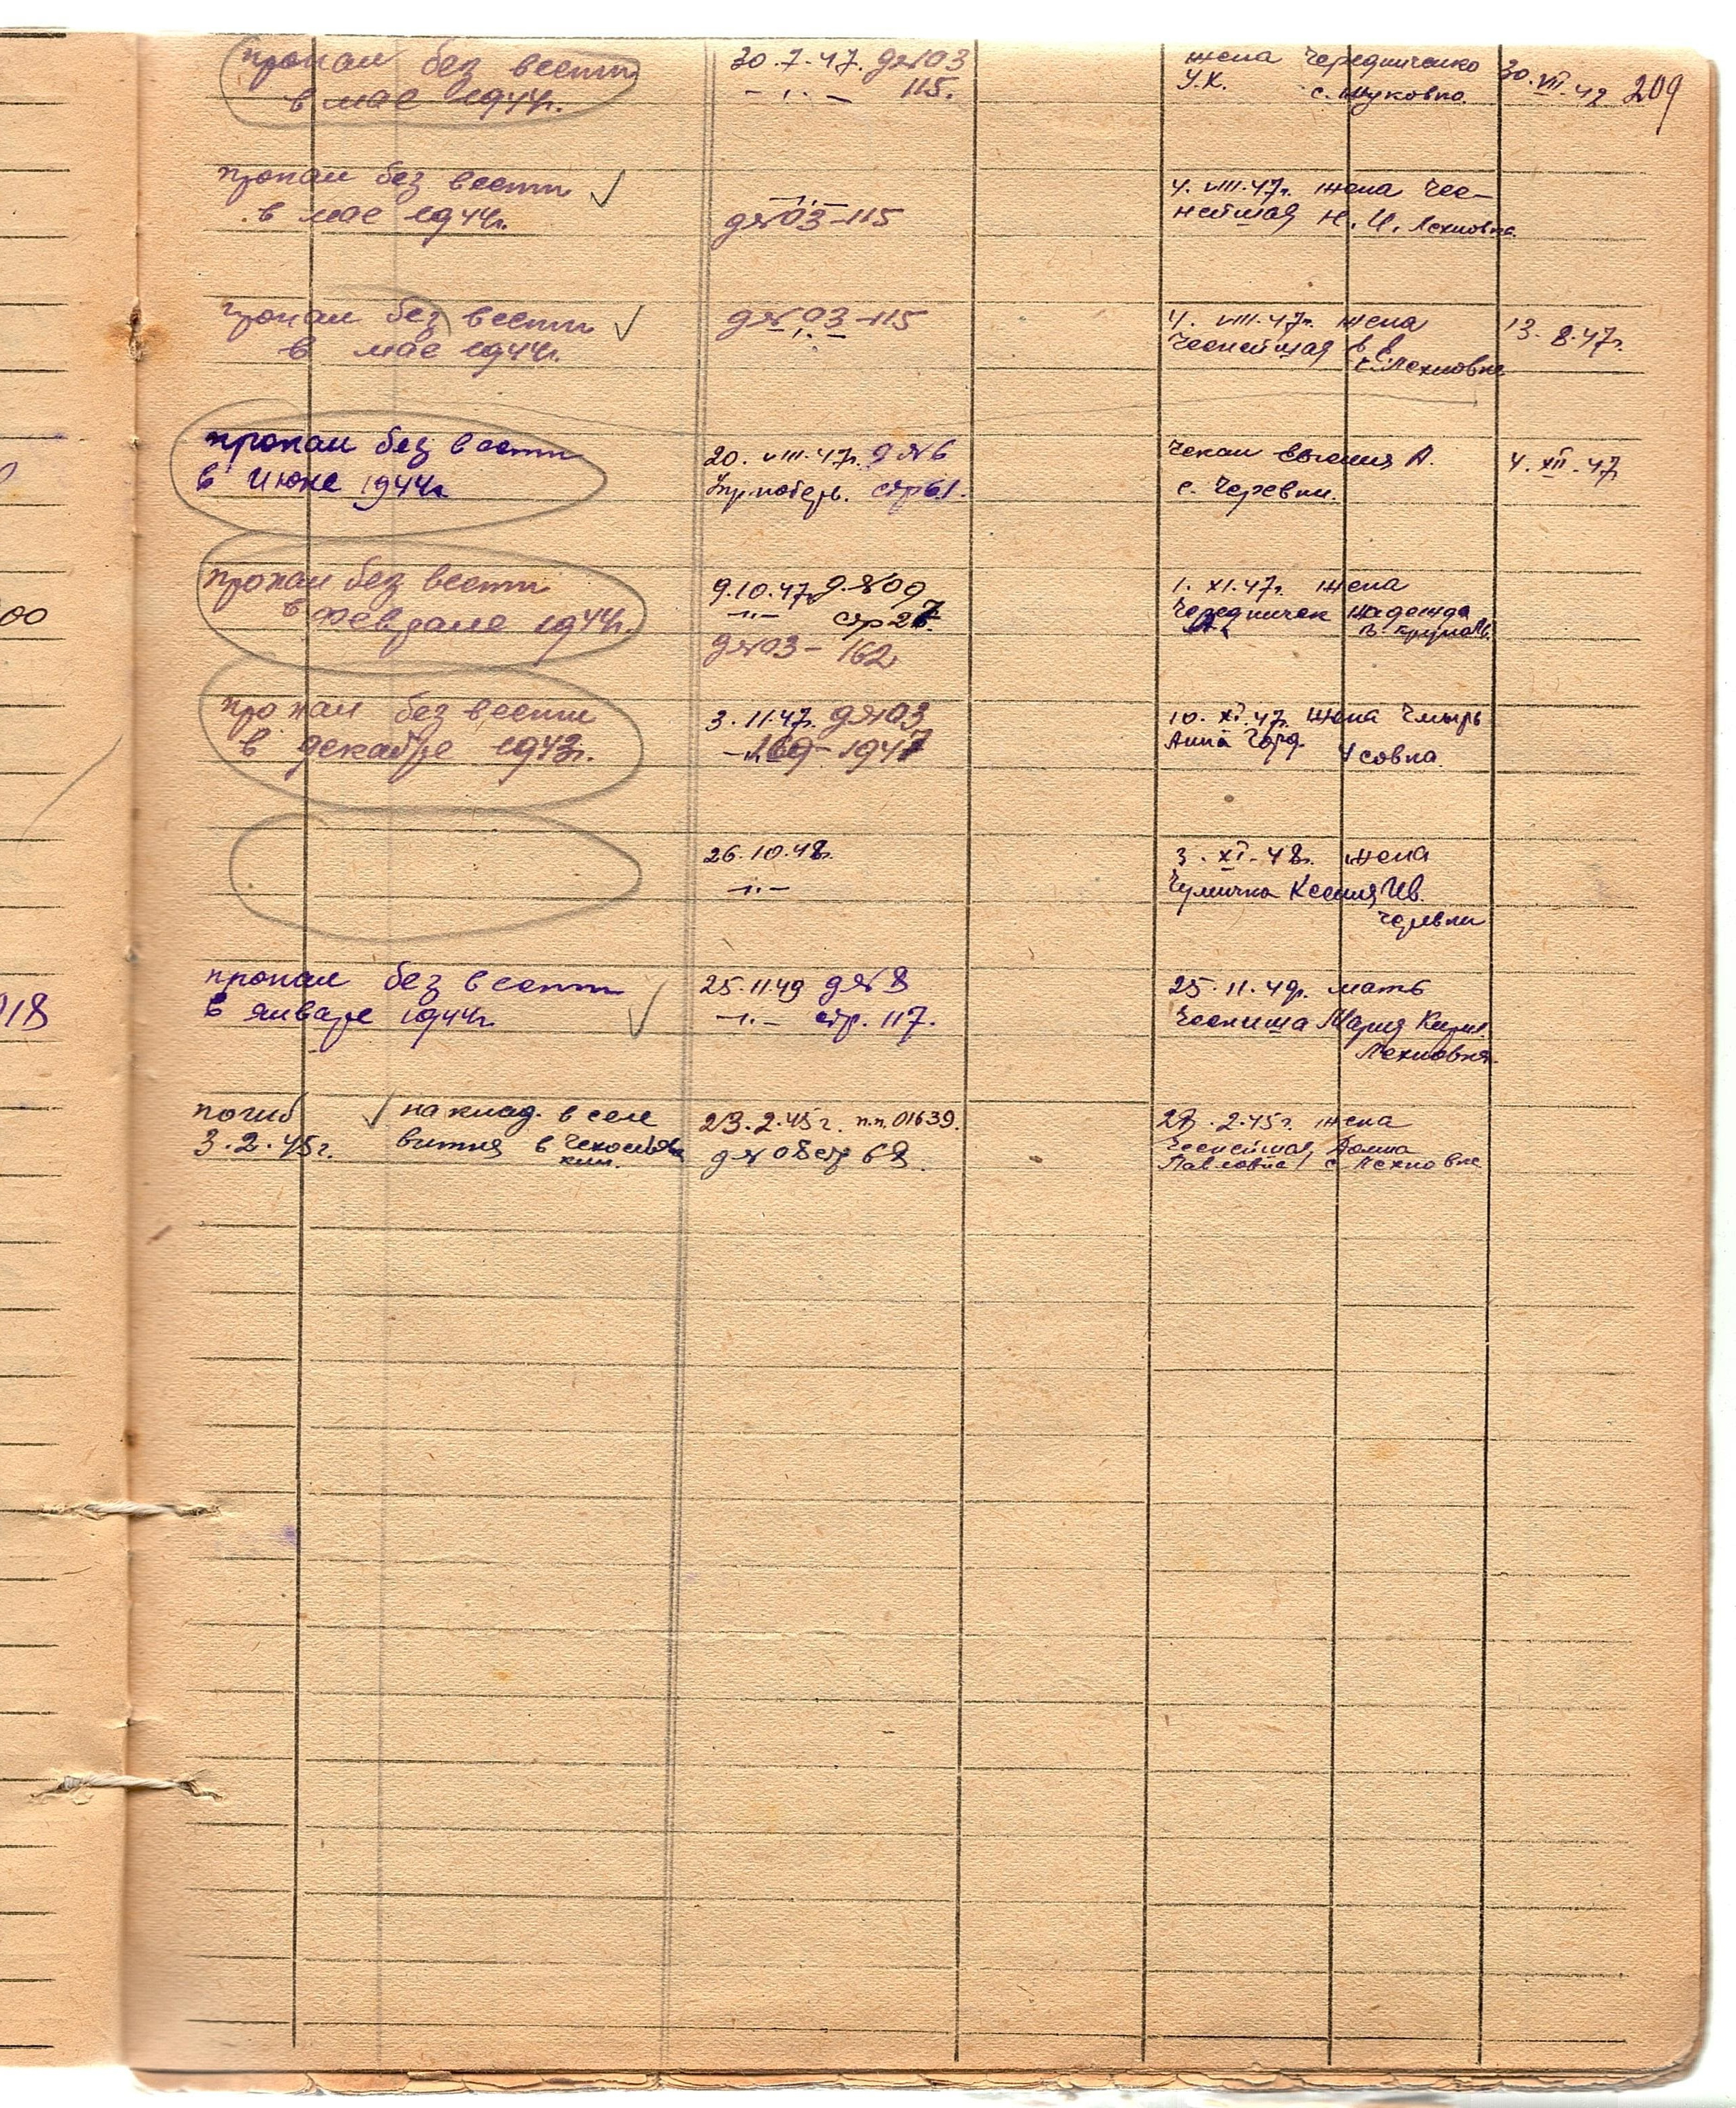 209
пропал без вести
в мае 1944г.
30.7.47. д№03
115.
жена Чередниченко
У.К. с. Жуковка.
30.VII 47
пропал без вести ✓
в мае 1944г.
— " —
д№03-115
4. VIII.47г. жена Чес-
нейшая Н. И. Лехновка
пропал без вести ✓
в мае 1944г.
д№03-115
— " —
4. VIII.47г. жена
Чеснейшая В
с. Лехновка
13. 8.47г.
пропал без вести
в июне 1944г
20. VIII.47г. д№6
стр61.
Чекал Евгения А.
с. Черевки.
4. XII.47
пропал без вести
в феврале 1944г.
9.10.47г д.№09
— " — стр27.
д№03-162
1. XI.47г. жена
Надежда
пропал без вести
в декабре 1943г.
3.11.47г. д№03
169-1947
10. XI.47г. жена Чмырь
Анна Усовка
26.10.48г.
— " —
3. XI.48г. жена
Ксения Ив.
Черевки
пропал без вести ✓
в январе 1944г.
25.11.49 д№8
— " — стр. 117.
25.11.49г. мать
Мария Кирил.
Лехновка.
погиб
3.2.45г.
✓ на клад. в селе
в Чехослова
кии.
23.2.45г. п.п.01639.
д№08 стр 68.
23.2.45г. жена
Чеснейшая Домна
Павловна с. Лехновка
00
918